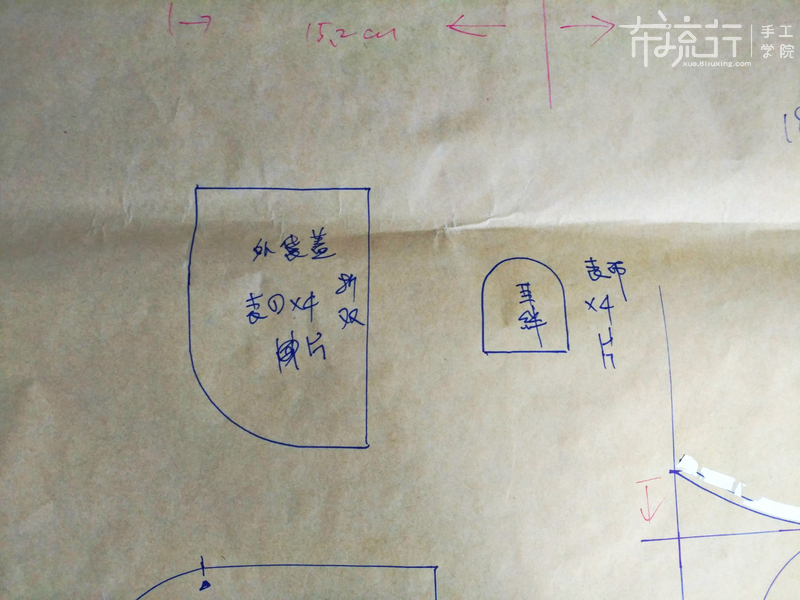 15.2cm
布流行
手工
学院
xue.buliuxing.com
外袋盖
表①×4
片
折
双
耳
绊
表布
×4
片